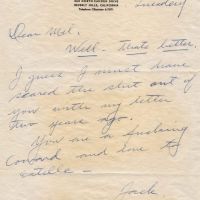 BEVERLY HILLS, CALIFORNIA
Tuesday
Dear Mel.
Well - thats better.
I guess I must have
scared the shit out of
you with my letter
two years ago.
You are a
Coward and love to
Estelle -
Jack